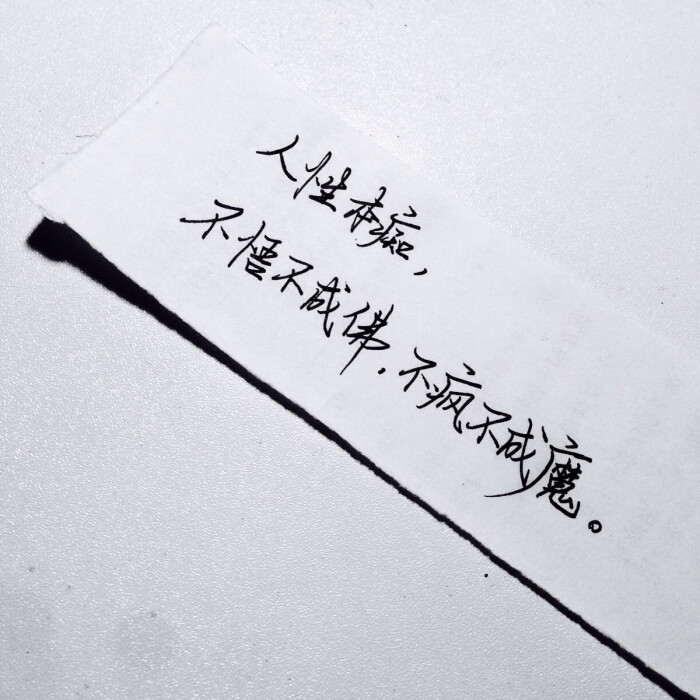 人性本痴，
不悟不成佛.不疯不成魔。